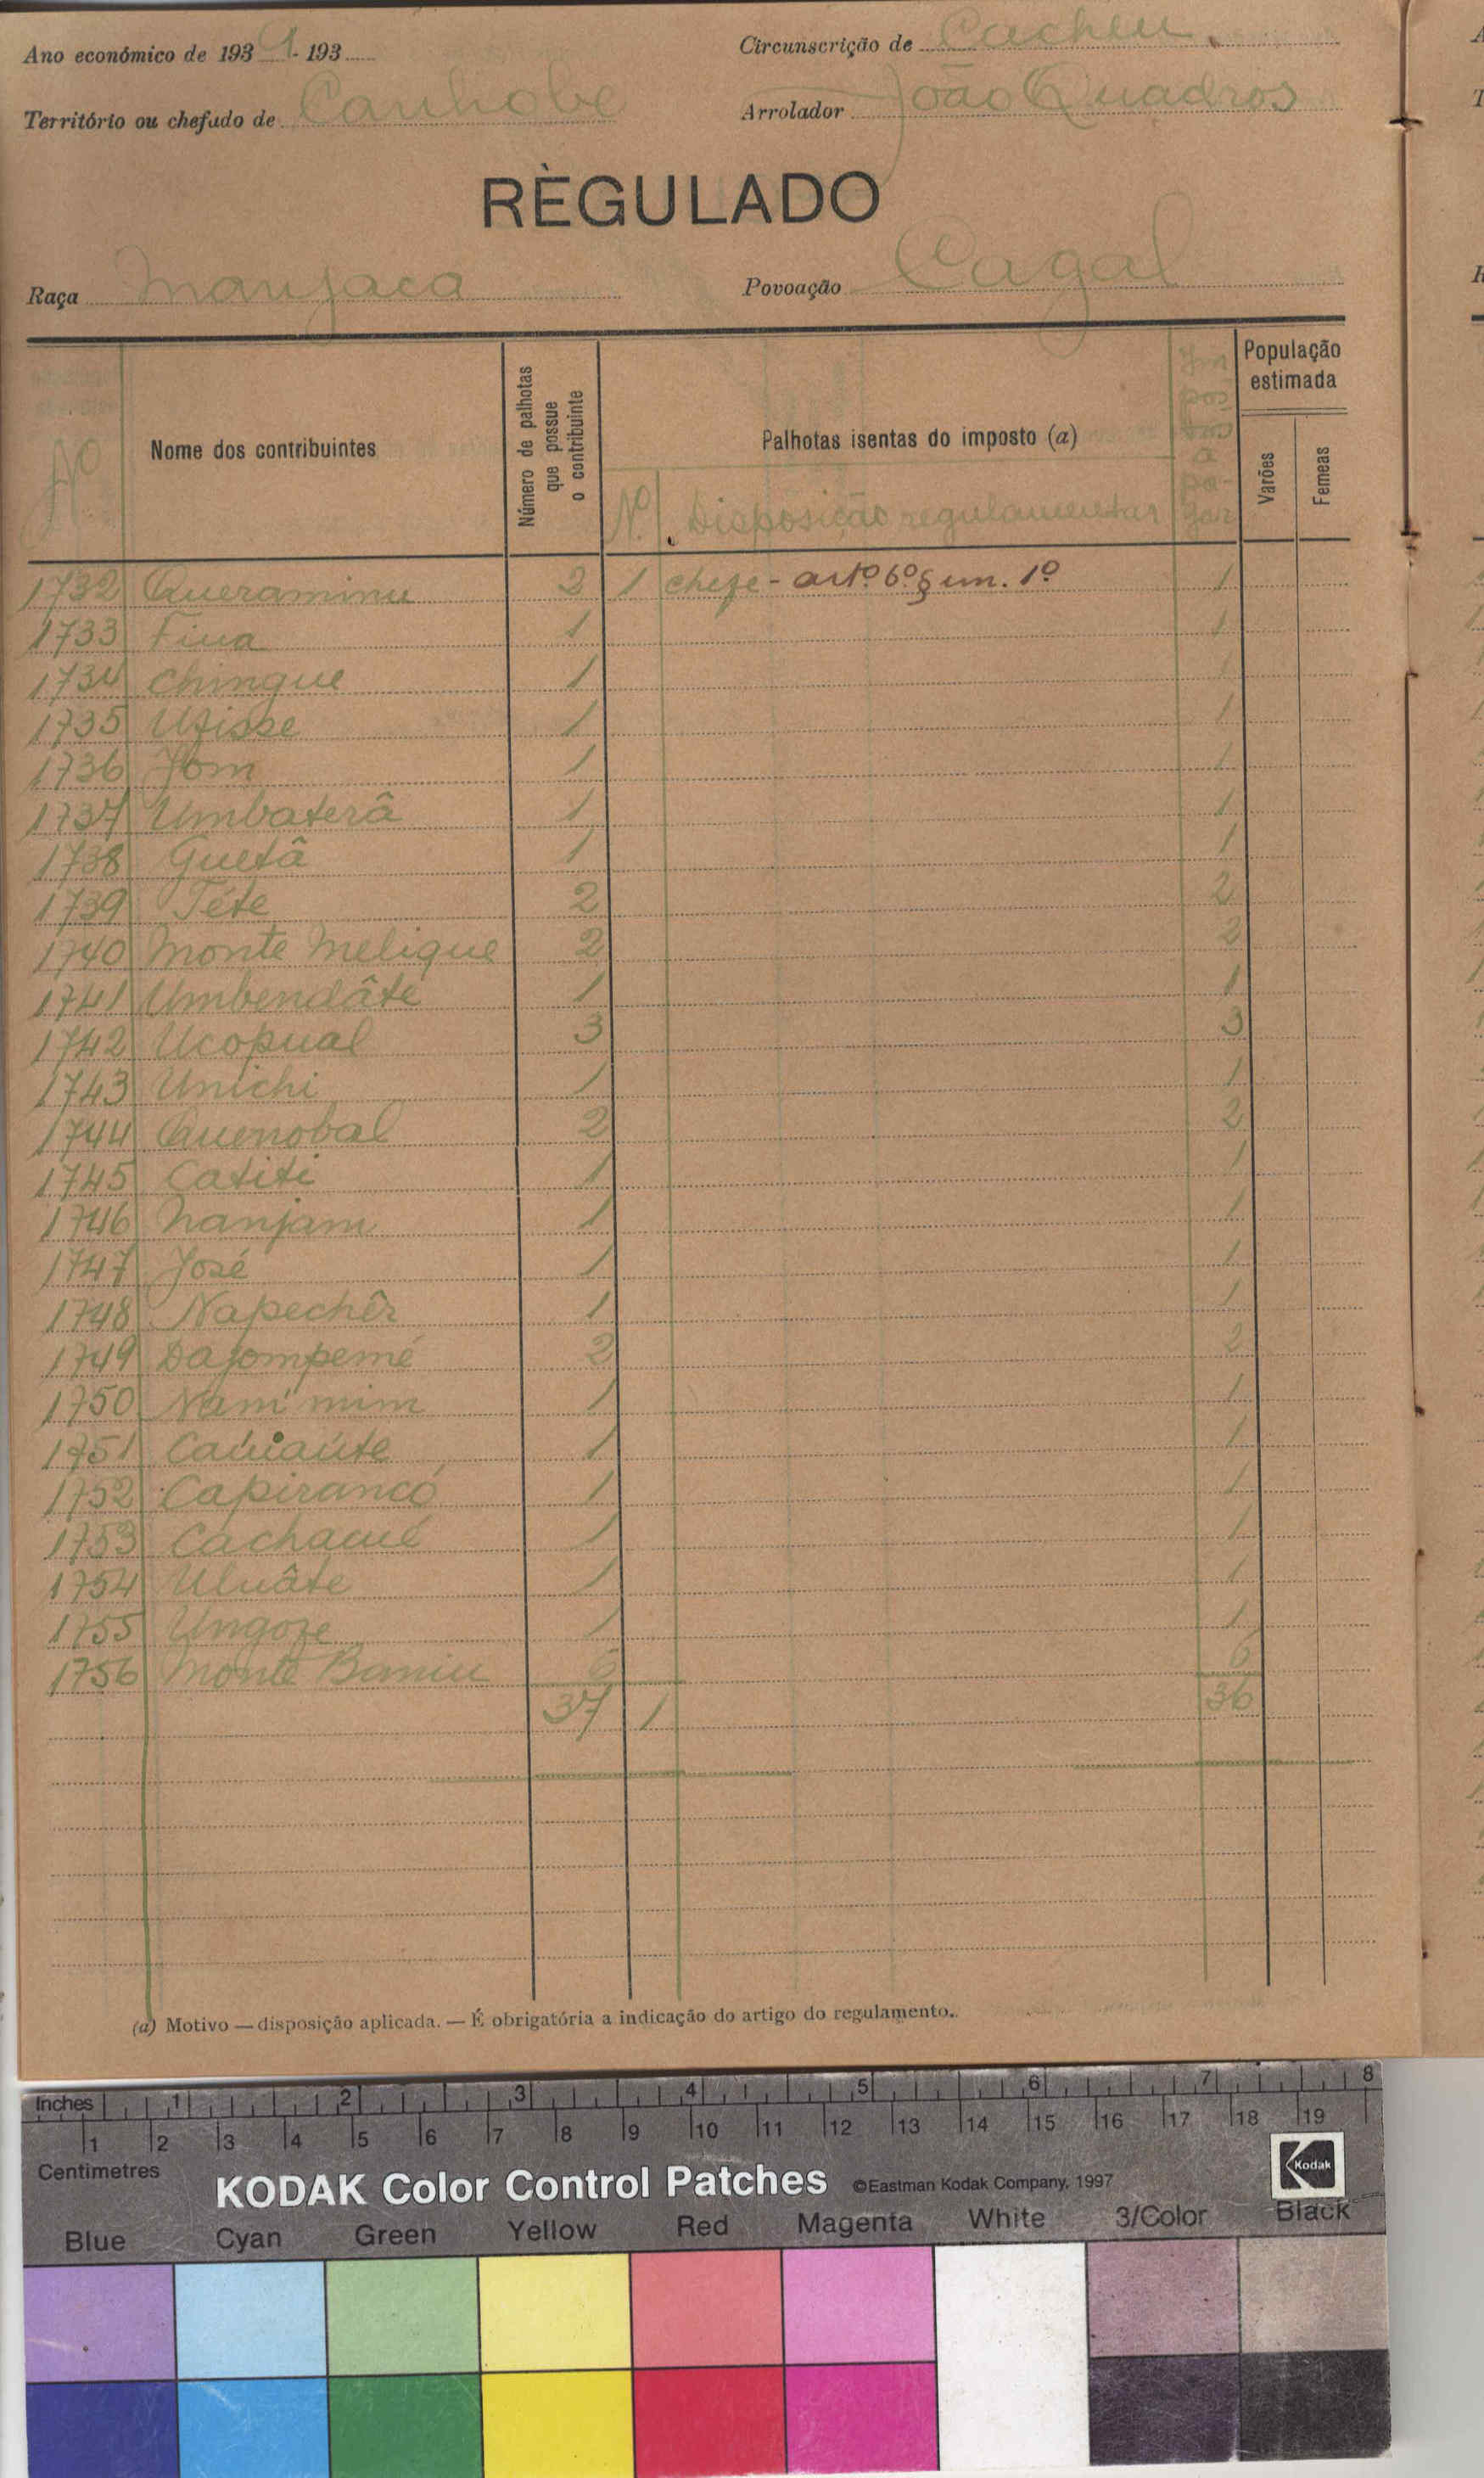 Ano económico de 1939 - 193
Circunscrição de Cacheu
Território ou chefado de Canhobe
Arrolador João Quadros
RÈGULADO
Raça Manjaca
Povoação Cagal
Nº
Nome dos contribuintes
Número de palhotas que possue o contribuinte
Palhotas isentas do imposto (a)
Nº Disposição regulamentar
Impostos a pagar
População estimada
Varões
Femeas
1732 Queraminu 2 1 chefe - artº 6º § un. 1º 1
1733 Fina 1 1
1734 Chingue 1 1
1735 Utisse 1 1
1736 Jom 1 1
1737 Umbaterâ 1 1
1738 Guetâ 1 1
1739 Téte 2 2
1740 Monte Melique 2 2
1741 Umbendâte 1 1
1742 Ucopual 3 3
1743 Unichi 1 1
1744 Quenobal 2 2
1745 Catiti 1 1
1746 Nanjam 1 1
1747 José 1 1
1748 Napechêr 1 1
1749 Dajompemé 2 2
1750 Nam mim 1 1
1751 1 1
1752 Capirancó 1 1
1753 Cachacué 1 1
1754 Uluâte 1 1
1755 Ungoze 1 1
1756 Monte Baniu 6 6
37 1 36
(a) Motivo — disposição aplicada. — É obrigatória a indicação do artigo do regulamento.
Inches 1 2 3 4 5 6 7 8
1 2 3 4 5 6 7 8 9 10 11 12 13 14 15 16 17 18 19
Centimetres
KODAK Color Control Patches ©Eastman Kodak Company, 1997 Kodak
Blue Cyan Green Yellow Red Magenta White 3/Color Black